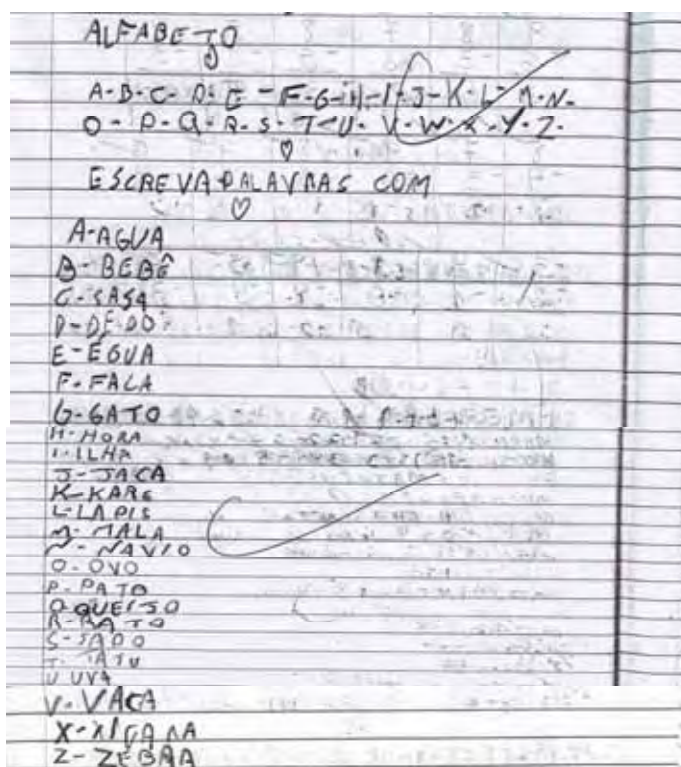 ALFABETO
A-B-C-D-E-F-G-H-I-J-K-L-M-N-
O-P-Q-R-S-T-U-V-W-X-Y-Z-
ESCREVA PALAVRAS COM
A-AGUA
B-BEBÊ
C-SASA
D-DEDO
E-ÉGUA
F-FALA
G-GATO
H-HORA
I-ILHA
J-JACA
K-KARE
L-LAPIS
M-MALA
N-NAVIO
O-OVO
P-PATO
Q-QUEIJO
R-RATO
S-SAPO
T-TATU
U UVA
V-VACA
X-XIGARA
Z-ZEBRA